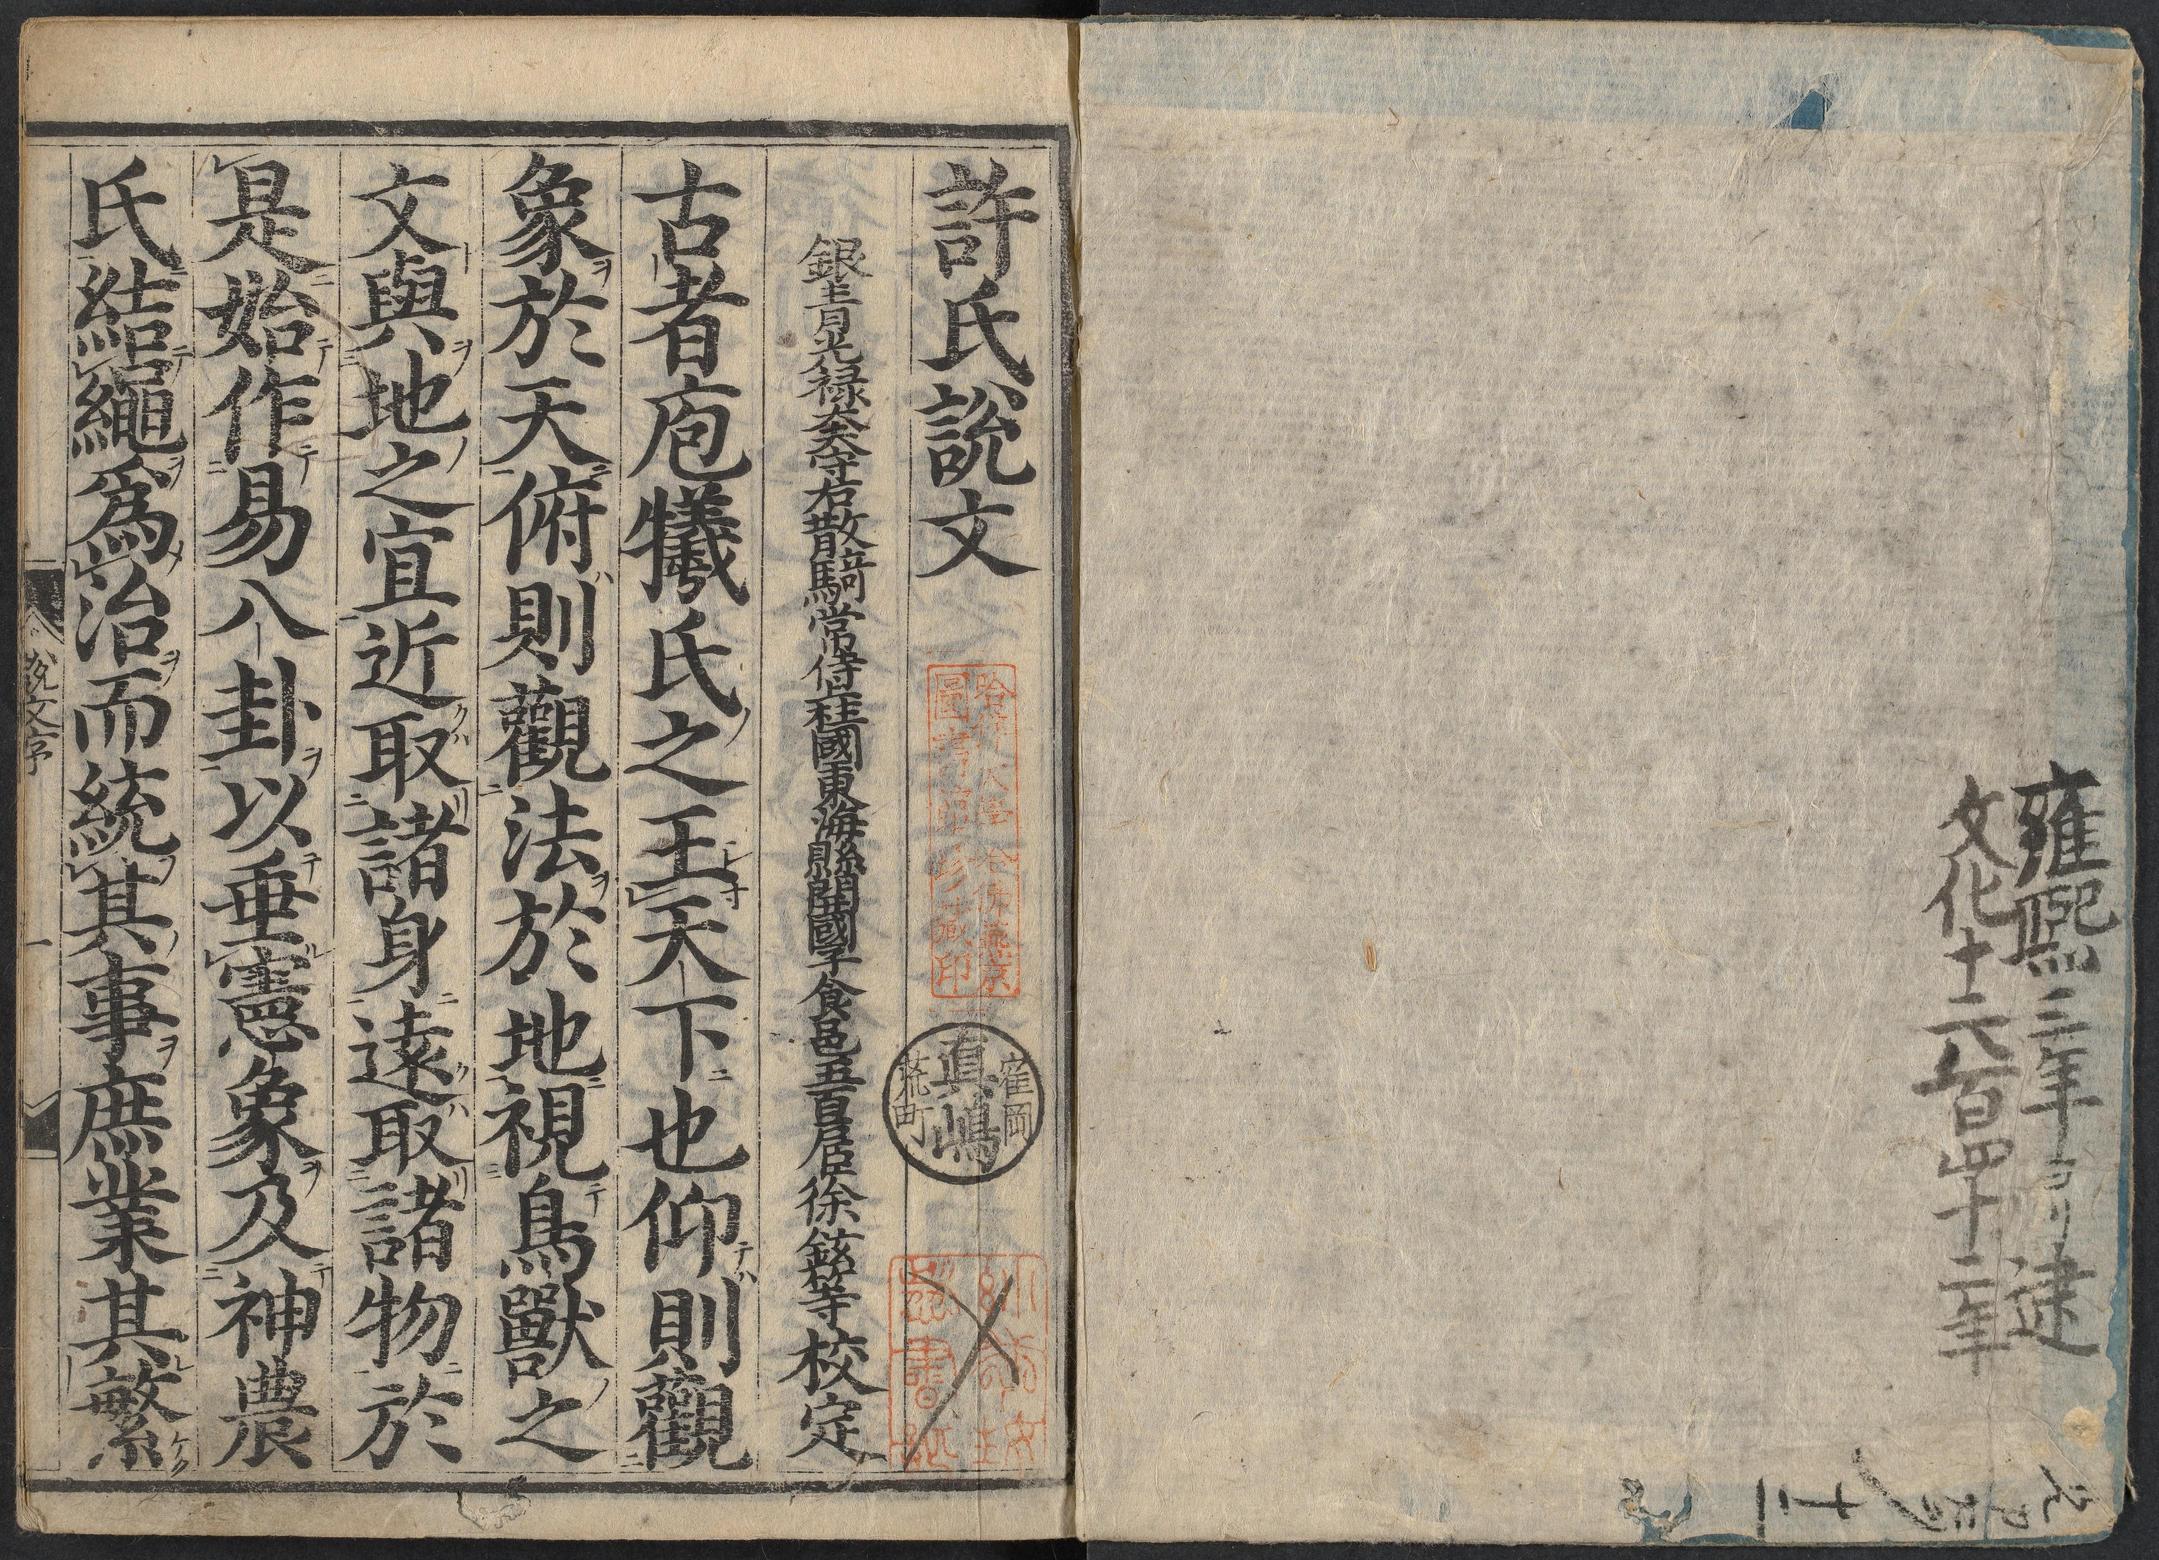 雍熙三年ヨリ逮
文化十六百四十二年
許氏說文
哈佛大學哈佛燕京
圖書館珍藏印
寉岡
真嶋
荒町
銀青光禄大夫守右散騎常侍上柱國東海縣開國子食邑五百戸臣徐鉉等校定
古者庖犧氏之王天下也仰則觀
象於天俯則觀法於地視鳥獸之
文與地之宜近取諸身遠取諸物於
是始作易八卦以垂憲象及神農
氏結繩爲治而統其事庶業其繁
說文序
一